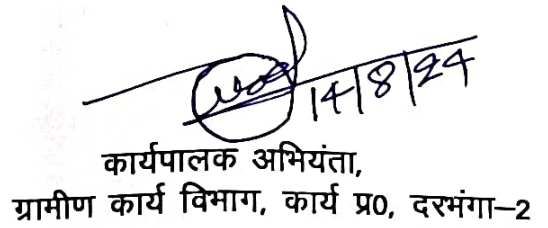 14/8/24
कार्यपालक अभियंता,
ग्रामीण कार्य विभाग, कार्य प्र0, दरभंगा–2